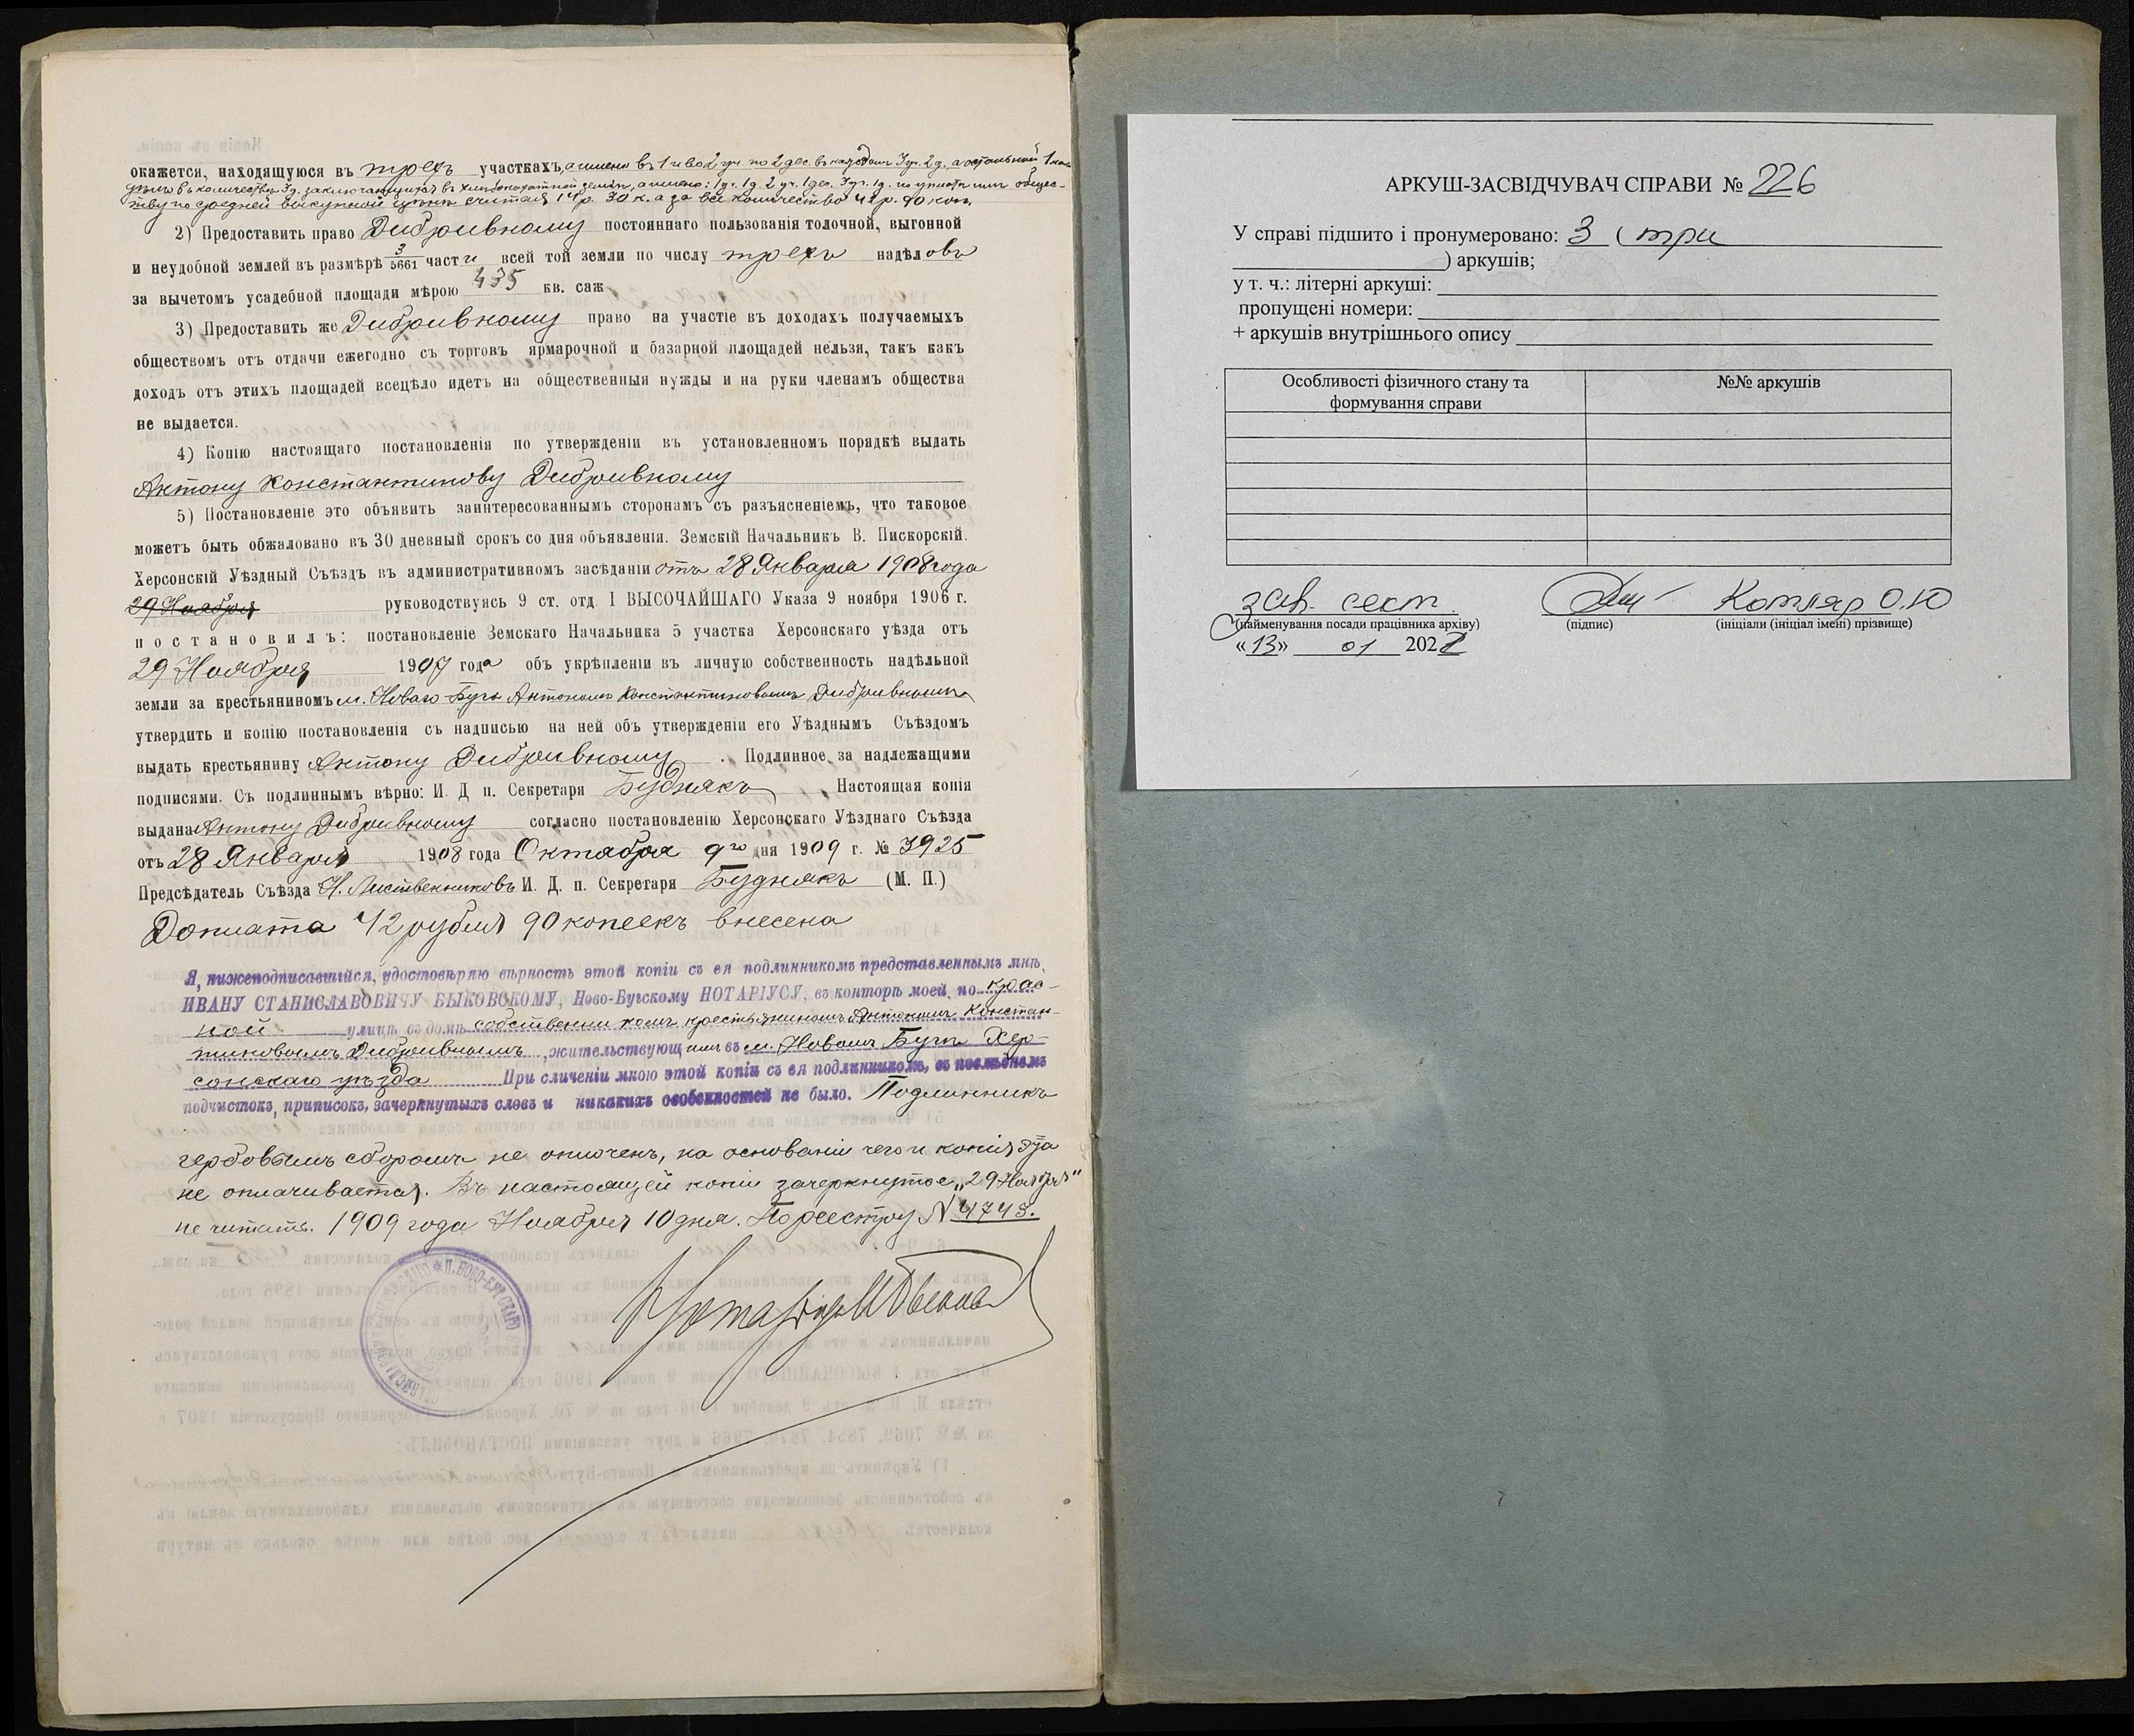 окажется, находящуюся въ трехъ участкахъ, а именно въ 1 и во 2 уч. по 2 дес. въ каждомъ 3 уч. 2 д. а остальной 1 на-
дѣлъ въ количествѣ 3 д. заключающихся въ хлѣбопахатной землѣ, а именно: 1 уч. 1 д. 2 уч. 1 дес. 3 уч. 1 д. по уплатѣ имъ общес-
тву по средней выкупной цѣнѣ считая 14 р. 30 к. а за все количество 42 р. 90 коп.
2) Предоставить право Дибривному постояннаго пользованія толочной, выгонной
и неудобной землей въ размѣрѣ 3/5661 части всей той земли по числу трехъ надѣловъ
за вычетомъ усадебной площади мѣрою 435 кв. саж
3) Предоставить же Дибривному право на участіе въ доходахъ получаемыхъ
обществомъ отъ отдачи ежегодно съ торговъ ярмарочной и базарной площадей нельзя, такъ какъ
доходъ отъ этихъ площадей всецѣло идетъ на общественныя нужды и на руки членамъ общества
не выдается.
4) Копію настоящаго постановленія по утвержденіи въ установленномъ порядкѣ выдать
Антону Константинову Дибривному
5) Постановленіе это объявить заинтересованнымъ сторонамъ съ разъясненіемъ, что таковое
можетъ быть обжаловано въ 30 дневный срокъ со дня объявленія. Земскій Начальникъ В. Пискорскій.
Херсонскій Уѣздный Съѣздъ въ административномъ засѣданіи отъ 28 Января 1908 года
29 Ноября руководствуясь 9 ст. отд I ВЫСОЧАЙШАГО Указа 9 ноября 1906 г.
постановилъ: постановленіе Земскаго Начальника 5 участка Херсонскаго уѣзда отъ
29 Ноября 1907 года объ укрѣпленіи въ личную собственность надѣльной
земли за крестьяниномъ м. Новаго-Буга Антономъ Константиновымъ Дибривнымъ
утвердить и копію постановленія съ надписью на ней объ утвержденіи его Уѣзднымъ Съѣздомъ
выдать крестьянину Антону Дибривному. Подлинное за надлежащими
подписями. Съ подлиннымъ вѣрно: И. Д п. Секретаря Буднякъ Настоящая копія
выдана Антону Дибривному согласно постановленію Херсонскаго Уѣзднаго Съѣзда
отъ 28 Января 1908 года Октября 9го дня 1909 г. № 3925
Предсѣдатель Съѣзда Н. Лиственниковъ И. Д. п. Секретаря Буднякъ (М. П.)
Доплата 42 рубля 90 копеекъ внесена
Я, нижеподписавшійся, удостовѣряю вѣрность этой копіи съ ея подлинникомъ представленнымъ мнѣ,
ИВАНУ СТАНИСЛАВОВИЧУ БЫКОВСКОМУ, Ново-Бугскому НОТАРІУСУ, въ конторѣ моей, по Крас-
ной улицѣ въ домѣ собственномъ крестьяниномъ Антономъ Констан-
тиновымъ Дибривнымъ, жительствующимъ въ м. Новомъ Бугѣ Хер-
сонскаго уѣзда При сличеніи мною этой копіи съ ея подлинникомъ, въ послѣднемъ
подчистокъ, приписокъ, зачеркнутыхъ словъ и никакихъ особенностей не было. Подлинникъ
гербовымъ сборомъ не оплоченъ, на основаніи чего и копія эта
не оплачивается. Въ настоящей копіи зачеркнутое „29 Ноября“
не читать. 1909 года Ноября 10 дня. По реестру № 4743.
Нотаріусъ И Быков
АРКУШ-ЗАСВІДЧУВАЧ СПРАВИ № 226
У справі підшито і пронумеровано: 3 ( три
) аркушів;
у т. ч.: літерні аркуші:
пропущені номери:
+ аркушів внутрішнього опису
Особливості фізичного стану та формування справи
№№ аркушів
зав. сект. Котляр О.Ю
(найменування посади працівника архіву) (підпис) (ініціали (ініціал імені) прізвище)
«13» 01 2022